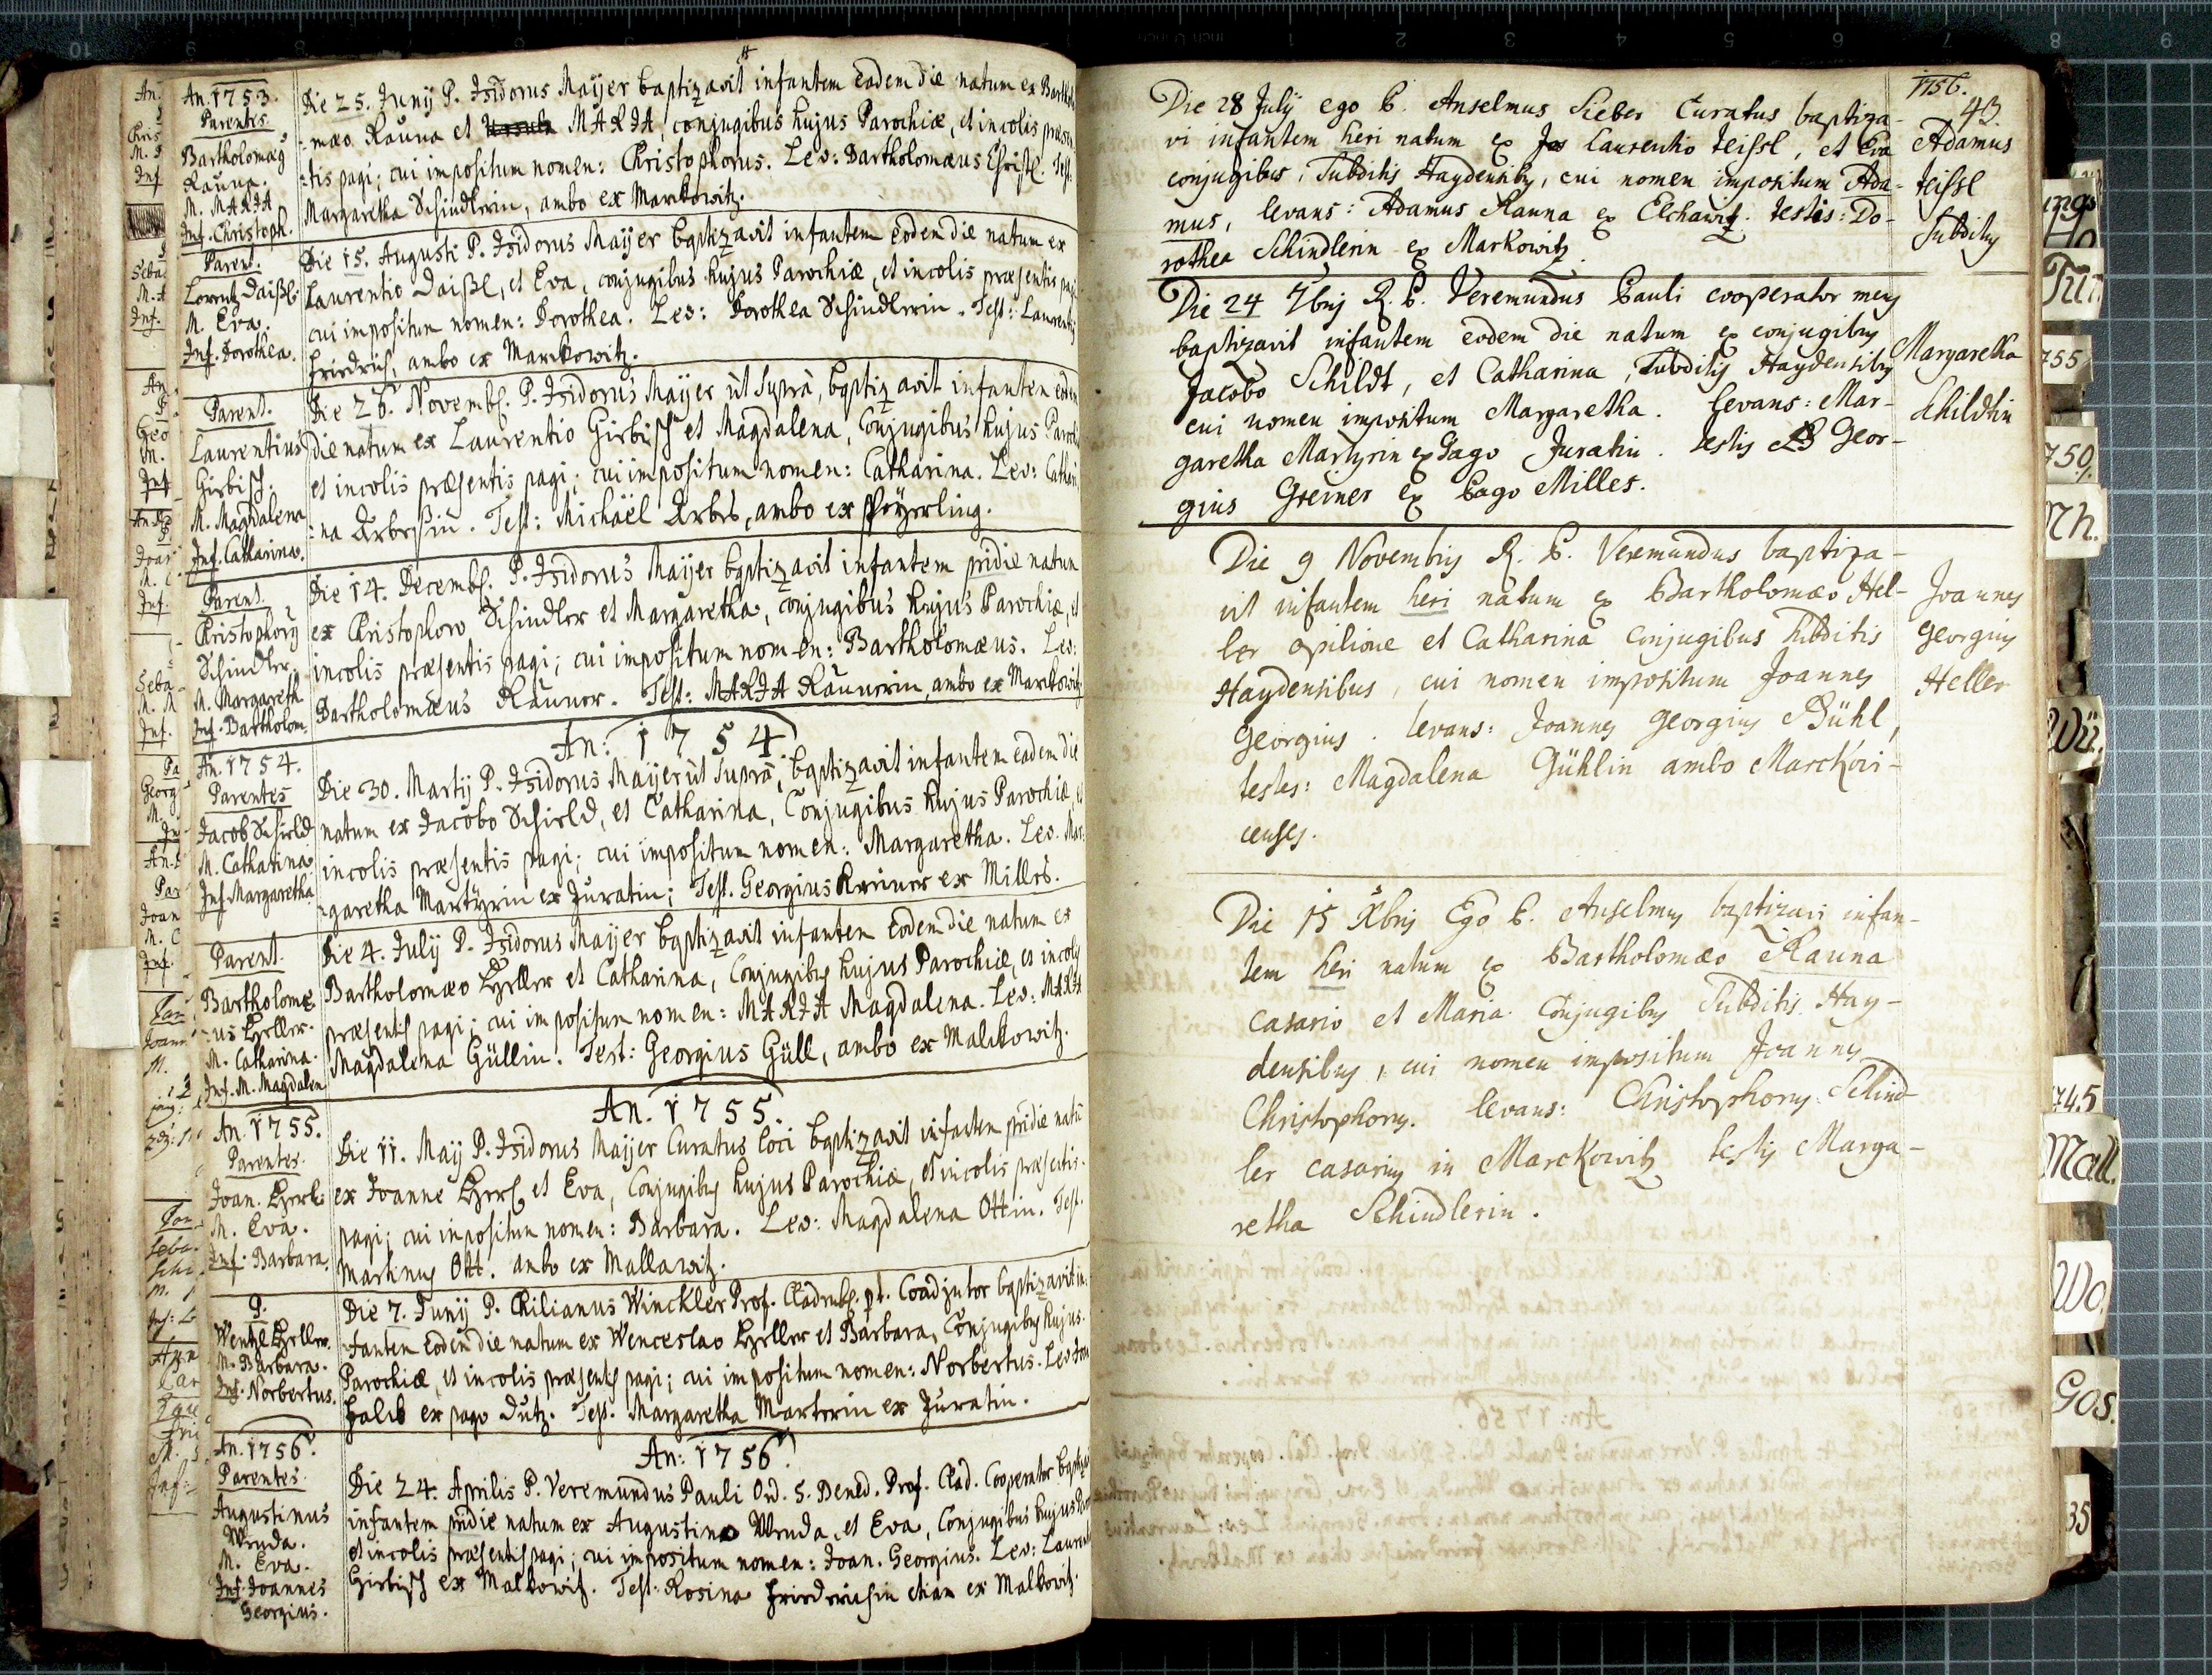 An. 1753.
Parentes
Bartholomaeus
Rauna.
M. MARIA
Inf. Christoph.
Die 25. Junij P. Isidorus Maijer baptizavit infantem eodem die natum ex Bartholo
-maeo Rauna et Ursula MARIA, conjugibus hujus Parochiae, et incolis praesen
-tis pagi; cui impositum nomen: Christophorus. Lev: Bartholomaeus Test.
Margaretha Schindlerin, ambo ex Marckowitz.
Parent.
Lorentz Daißl.
M. Eva.
Inf. Dorothea.
Die 15. Augusti P. Isidorus Maijer baptizavit infantem eodem die natum ex
Laurentio Daißl, et Eva, conjugibus hujus Parochiae, et incolis praesentis pagi
cui impositum nomen: Dorothea. Lev: Dorothea Schindlerin. Test: Laurentius
Friedrich, ambo ex Marckowitz.
Parent.
Laurentius
Girbisch.
M. Magdalena
Inf. Catharina.
Die 26. Novemb. P. Isidorus Maijer ut supra, baptizavit infantem eodem
die natum ex Laurentio Girbisch et Magdalena, Conjugibus hujus Parochi
et incolis praesentis pagi; cui impositum nomen: Catharina. Lev: Cathari
-na Arbesin. Test: Michaël Arbes, ambo ex Poÿerling.
Parent.
Christophorus
Schindler.
M. Margareth
Inf. Bartholom.
Die 14. Decemb. P. Isidorus Maijer baptizavit infantem pridie natum
ex Christophoro Schindler et Margaretha, conjugibus hujus Parochiae, et
incolis praesentis pagi; cui impositum nomen: Bartholomaeus. Lev:
Bartholomaeus Rauner. Test: MARIA Raunerin, ambo ex Marckowitz
An: 1754.
An. 1754.
Parentes
Jacob Schirld
M. Catharina
Inf. Margaretha
Die 30. Martij P. Isidorus Maijer ut supra, baptizavit infantem eodem die
natum ex Jacobo Schirld, et Catharina, Conjugibus hujus Parochiae, et
incolis praesentis pagi; cui impositum nomen: Margaretha. Lev. Mar
-garetha Martÿrin ex Juratin; Test. Georgius Kreiner ex Milles.
Parent.
Bartholomae
-us Heller.
M. Catharina.
Inf. M. Magdalen
Die 4. Julij P. Isidorus Maijer baptizavit infantem eodem die natum ex
Bartholomaeo Heller et Catharina, Conjugibus hujus Parochiae, et incolis
praesentis pagi; cui impositum nomen: MARIA Magdalena. Lev: MARIA
Magdalena Güllin. Test: Georgius Güll, ambo ex Malckowitz.
An. 1755.
An. 1755.
Parentes.
Joan.
M. Eva.
Inf. Barbara.
Die 11. Maij P. Isidorus Maijer Curatus loci baptizavit infantem pridie natum
ex Joanne et Eva, Conjugibus hujus Parochiae, et incolis praesentis
pagi; cui impositum nomen: Barbara. Lev: Magdalena Ottin. Test.
Martinus Ott. ambo ex Mallawitz.
P.
Wentzl Heller.
M. Barbara.
Inf. Norbertus.
Die 7. Junij P. Chilianus Winckler Prof. Cladrub. pt. Coadjutor baptizavit in-
-fantem eodem die natum ex Wenceslao Heller et Barbara, Conjugibus hujus
Parochiae, et incolis praesentis pagi; cui impositum nomen: Norbertus. Lev: Joan
ex pago Dutz. Test. Margaretha Marterin ex Juratin.
An: 1756.
An. 1756.
Parentes.
Augustinus
Wruda.
M. Eva.
Inf. Joannes
Georgius.
Die 24. Aprilis P. Veremundus Pauli Ord. S. Bened. Prof. Clad. Cooperator baptizav
infantem pridie natum ex Augustino Wruda, et Eva, Conjugibus hujus Paro
et incolis praesentis pagi; cui impositum nomen: Joan. Georgius. Lev: Laurent
Girbisch ex Malkowitz. Test: Rosina Friedrichin etiam ex Malkowitz.
1756.
43
Die 28 July ego P. Anselmus Sieber Curatus baptiza-
vi infantem heri natum ex Jos Laurentio Teissl, et Eva
conjugibus, Subditis Haydensibus, cui nomen impositum Ada-
mus, levans: Adamus Rauna ex Elchawitz. testis: Do-
rothea Schindlerin ex Markowitz.
Adamus
Teissl
Subditus
Die 24 7bris R. P. Veremundus Pauli cooperator meus
baptizavit infantem eodem die natum ex conjugibus
Jacobo Schildt, et Catharina, Subditis Haydensibus
cui nomen impositum Margaretha. levans: Mar-
garetha Martyrin ex Pago Juratin. testis Geor-
gius Greiner ex Pago Milles.
Margaretha
Schildtin
Die 9 Novembris R. P. Veremundus baptiza-
vit infantem heri natum ex Bartholomaeo Hel-
ler opilione et Catharina Conjugibus Subditis
Haydensibus, cui nomen impositum Joannes
Georgius. levans: Joannes Georgius Bühl,
testes: Magdalena Gühlin ambo Marckovi-
censes.
Joannes
Georgius
Heller
Die 15 Xbris Ego P. Anselmus baptizavi infan-
tem heri natum ex Bartholomaeo Rauna
casario et Maria Conjugibus Subditis Hay-
densibus, cui nomen impositum Joannes
Christophorus. levans: Christophorus Schind-
ler casarius in Marckowitz testis Marga-
retha Schindlerin.
755
750
Wü.
745
Mall.
Wo.
Gos.
35